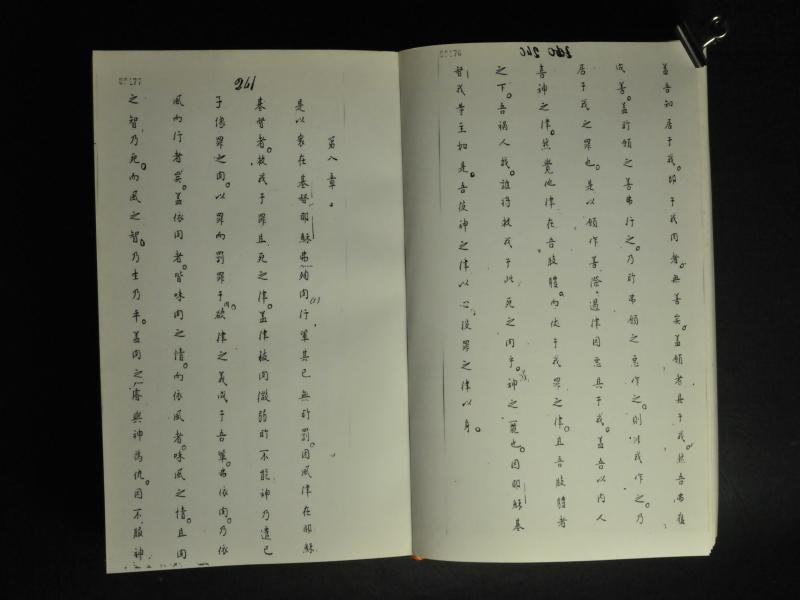 00176
240 240
盖吾知居于我。即于我肉者。無善矣。盖願者具于我。然吾弗獲
成善。盖所願之善弗行之。乃所弗願之惡作之。則非我作之。乃
居于我之罪也。是以願作善際。遇律因惡具于我。盖吾以内人
喜神之律。然覺他律在吾肢體。而伏于我罪之律。且吾肢體者
之下。吾禍人哉。誰得救我于此死之肉乎。神之寵也。因耶穌基
督我等主如是。吾役神之律以心役罪之律以身。
00177
241
第八章
是以衆在基督耶穌弗循肉行軰其已無所罰。因風律在耶穌
基督者。救我于罪且死之律。盖律被肉微弱所不能神乃遣己
子像罪之肉。以罪而罰罪于肉。欲律之義成于吾軰。弗依肉。乃依
風而行者矣。盖依肉者。皆味肉之情。而依風者。味風之情。且肉
之智乃死。而風之智。乃生乃平。盖肉之睿與神為仇。因不服神